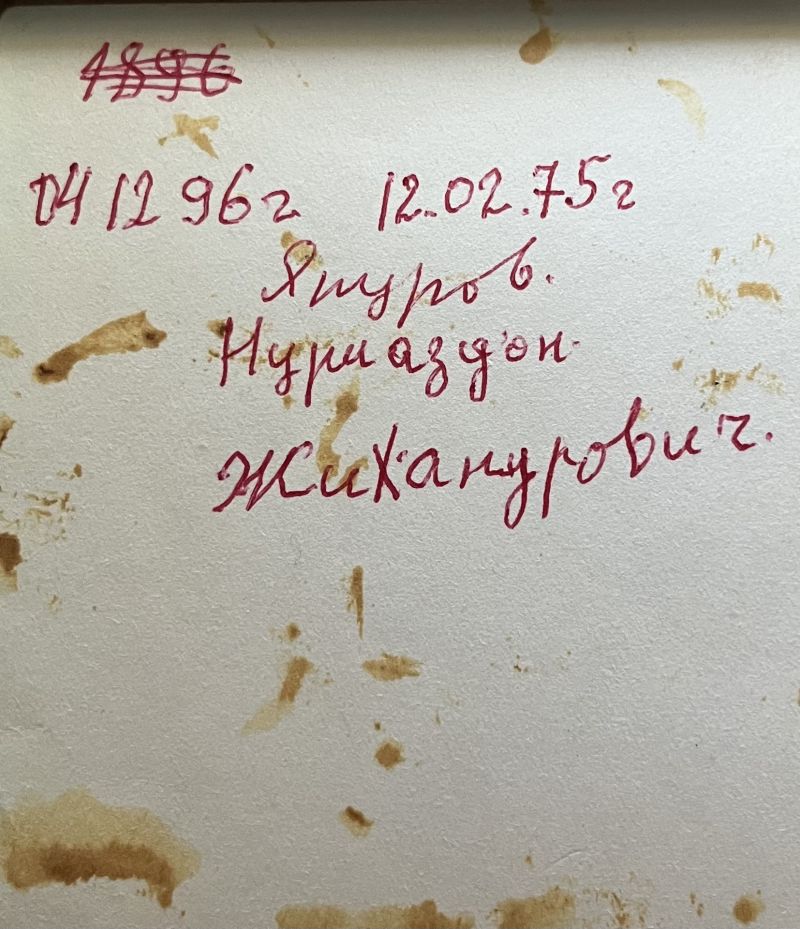 1896
04 12 96г. 12.02.75г
Япуров.
Нурмаздон.
Жиханурович.